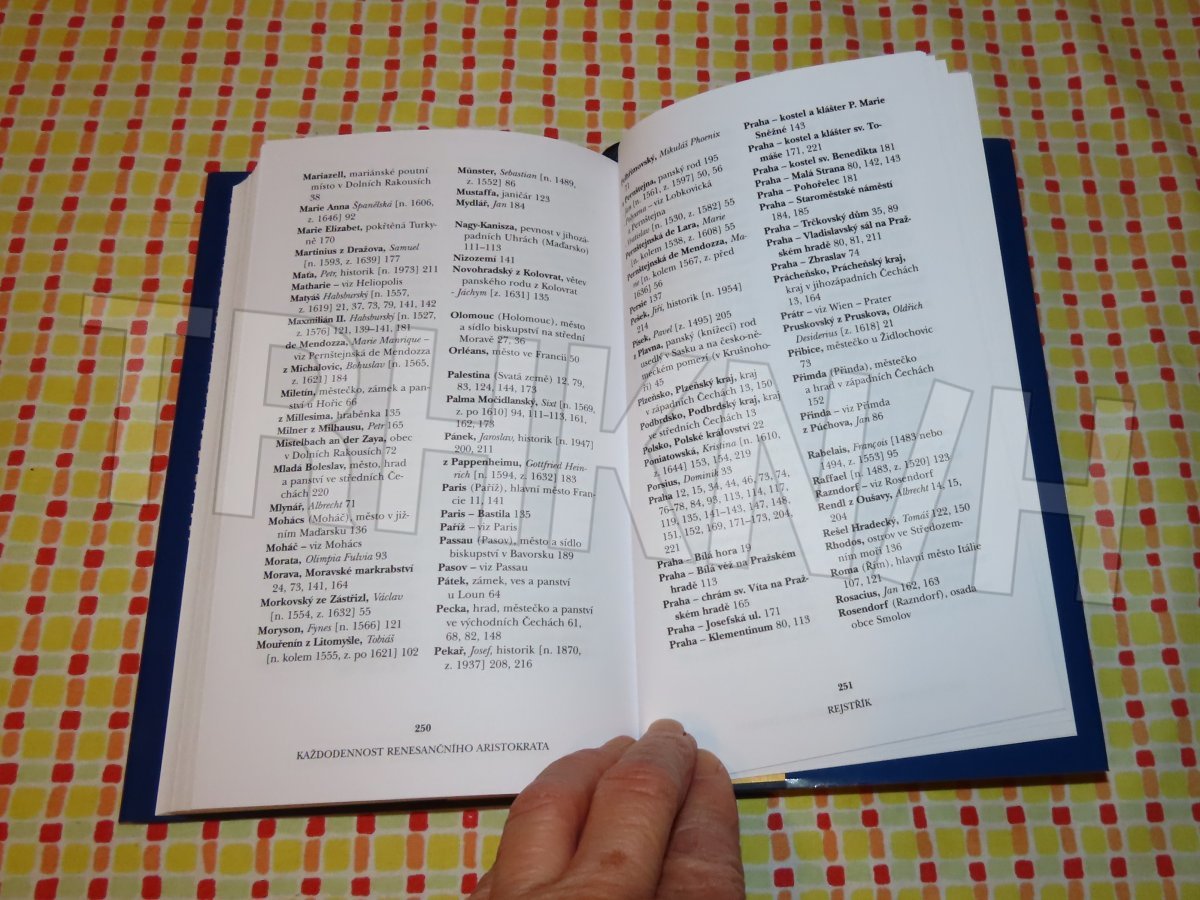 Mariazell, mariánské poutní
místo v Dolních Rakousích
38
Marie Anna Španělská [n. 1606,
z. 1646] 92
Marie Elizabet, pokřtěná Turky-
ně 170
Martinius z Dražova, Samuel
[n. 1593, z. 1639] 177
Maťa, Petr, historik [n. 1973] 211
Matharie – viz Heliopolis
Matyáš Habsburský [n. 1557,
z. 1619] 21, 37, 73, 79, 141, 142
Maxmilián II. Habsburský [n. 1527,
z. 1576] 121, 139–141, 181
de Mendozza, Marie Manrique –
viz Pernštejnská de Mendozza
z Michalovic, Bohuslav [n. 1565,
z. 1621] 184
Miletín, městečko, zámek a pan-
ství u Hořic 66
z Millesima, hraběnka 135
Milner z Milhausu, Petr 165
Mistelbach an der Zaya, obec
v Dolních Rakousích 72
Mladá Boleslav, město, hrad
a panství ve středních Če-
chách 220
Mlynář, Albrecht 71
Mohács (Moháč), město v již-
ním Maďarsku 136
Moháč – viz Mohács
Morata, Olimpia Fulvia 93
Morava, Moravské markrabství
24, 73, 91, 141, 164
Morkovský ze Zástřizl, Václav
[n. 1554, z. 1632] 55
Moryson, Fynes [n. 1566] 121
Mouřenín z Litomyšle, Tobiáš
[n. kolem 1555, z. po 1621] 102
Münster, Sebastian [n. 1489,
z. 1552] 86
Mustaffa, janičár 123
Mydlář, Jan 184
Nagy-Kanisza, pevnost v jihozá-
padních Uhrách (Maďarsko)
111–113
Nizozemí 141
Novohradský z Kolovrat, větev
panského rodu z Kolovrat
- Jáchym [z. 1631] 135
Olomouc (Holomouc), město
a sídlo biskupství na střední
Moravě 27, 36
Orléans, město ve Francii 50
Palestina (Svatá země) 12, 79,
83, 124, 144, 173
Palma Močidlanský, Sixt [n. 1569,
z. po 1610] 94, 111–113, 161,
162, 173
Pánek, Jaroslav, historik [n. 1947]
200, 211
z Pappenheimu, Gottfried Hein-
rich [n. 1594, z. 1632] 183
Paris (Paříž), hlavní město Fran-
cie 11, 141
Paris – Bastila 135
Paříž – viz Paris
Passau (Pasov), město a sídlo
biskupství v Bavorsku 189
Pasov – viz Passau
Pátek, zámek, ves a panství
u Loun 64
Pecka, hrad, městečko a panství
ve východních Čechách 61,
68, 82, 148
Pekař, Josef, historik [n. 1870,
z. 1937] 208, 216
250
KAŽDODENNOST RENESANČNÍHO ARISTOKRATA
Mikuláš Phoenix
71
z Pernštejna, panský rod 195
[n. 1561, z. 1597] 50, 56
– viz Lobkovická
z Pernštejna
Vratislav [n. 1530, z. 1582] 55
Pernštejnská de Lara, Marie
[n. kolem 1538, z. 1608] 55
Pernštejnská de Mendozza, Ma-
rie [n. kolem 1567, z. před
1636] 56
Persie 137
Pešek, Jiří, historik [n. 1954]
214
Písek, Pavel [z. 1495] 205
z Plavna, panský (knížecí) rod
usedlý v Sasku a na česko-ně-
meckém pomezí (v Krušnoho-
ří) 45
Plzeňsko, Plzeňský kraj, kraj
v západních Čechách 13, 150
Podbrdsko, Podbrdský kraj, kraj
ve středních Čechách 13
Polsko, Polské království 22
Poniatowská, Kristina [n. 1610,
z. 1644] 153, 154, 219
Porsius, Dominik 33
Praha 12, 15, 34, 44, 46, 73, 74,
76–78, 84, 93, 113, 114, 117,
119, 135, 141–143, 147, 148,
151, 152, 169, 171–173, 204,
221
Praha – Bílá hora 19
Praha – Bílá věž na Pražském
hradě 113
Praha – chrám sv. Víta na Praž-
ském hradě 165
Praha – Josefská ul. 171
Praha – Klementinum 80, 113
Praha – kostel a klášter P. Marie
Sněžné 143
Praha – kostel a klášter sv. To-
máše 171, 221
Praha – kostel sv. Benedikta 181
Praha – Malá Strana 80, 142, 143
Praha – Pohořelec 181
Praha – Staroměstské náměstí
184, 185
Praha – Trčkovský dům 35, 89
Praha – Vladislavský sál na Praž-
ském hradě 80, 81, 211
Praha – Zbraslav 74
Prácheňsko, Prácheňský kraj,
kraj v jihozápadních Čechách
13, 164
Prátr – viz Wien – Prater
Pruskovský z Pruskova, Oldřich
Desiderius [z. 1618] 21
Přibice, městečko u Židlochovic
73
Přimda (Přinda), městečko
a hrad v západních Čechách
152
Přinda – viz Přimda
z Púchova, Jan 86
Rabelais, François [1483 nebo
1494, z. 1553] 95
Raffael [n. 1483, z. 1520] 123
Razndorf – viz Rosendorf
Rendl z Oušavy, Albrecht 14, 15,
204
Rešel Hradecký, Tomáš 122, 150
Rhodos, ostrov ve Středozem-
ním moři 136
Roma (Řím), hlavní město Itálie
107, 121
Rosacius, Jan 162, 163
Rosendorf (Razndorf), osada
obce Smolov
251
REJSTŘÍK